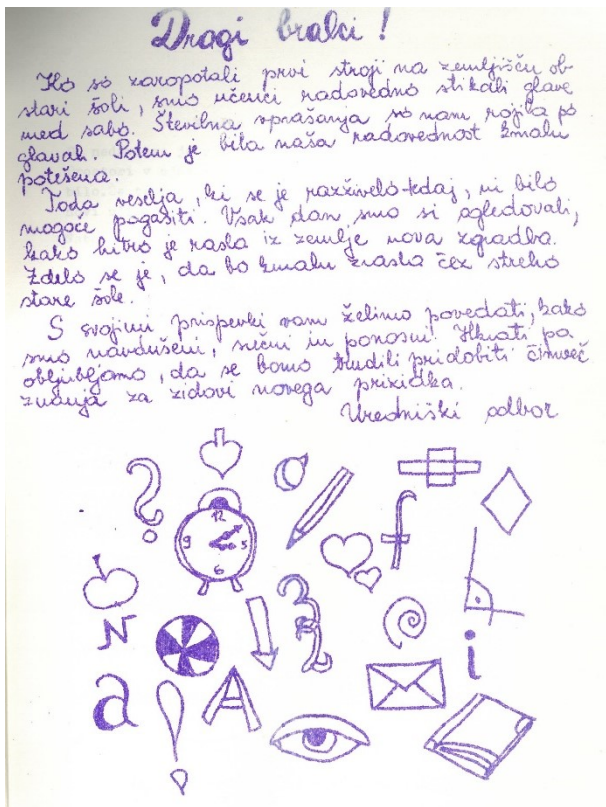 Dragi bralci!
Ko so zaropotali prvi stroji na zemljišču ob
stari šoli, smo učenci radovedno stikali glave
med sabo. Številna vprašanja so nam rojila po
glavah. Potem je bila naša radovednost kmalu
potešena.
Toda veselja, ki se je razživelo tedaj, ni bilo
mogoče pogasiti. Vsak dan smo si ogledovali,
kako hitro je rasla iz zemlje nova zgradba.
Zdelo se je, da bo kmalu zrasla čez streho
stare šole.
S svojimi prispevki vam želimo povedati, kako
smo navdušeni, srečni in ponosni. Hkrati pa
obljubljamo, da se bomo trudili pridobiti čimveč
znanja za zidovi novega prizidka.
Uredniški odbor
?
12
9 3
6
f
N
a
!
A
i